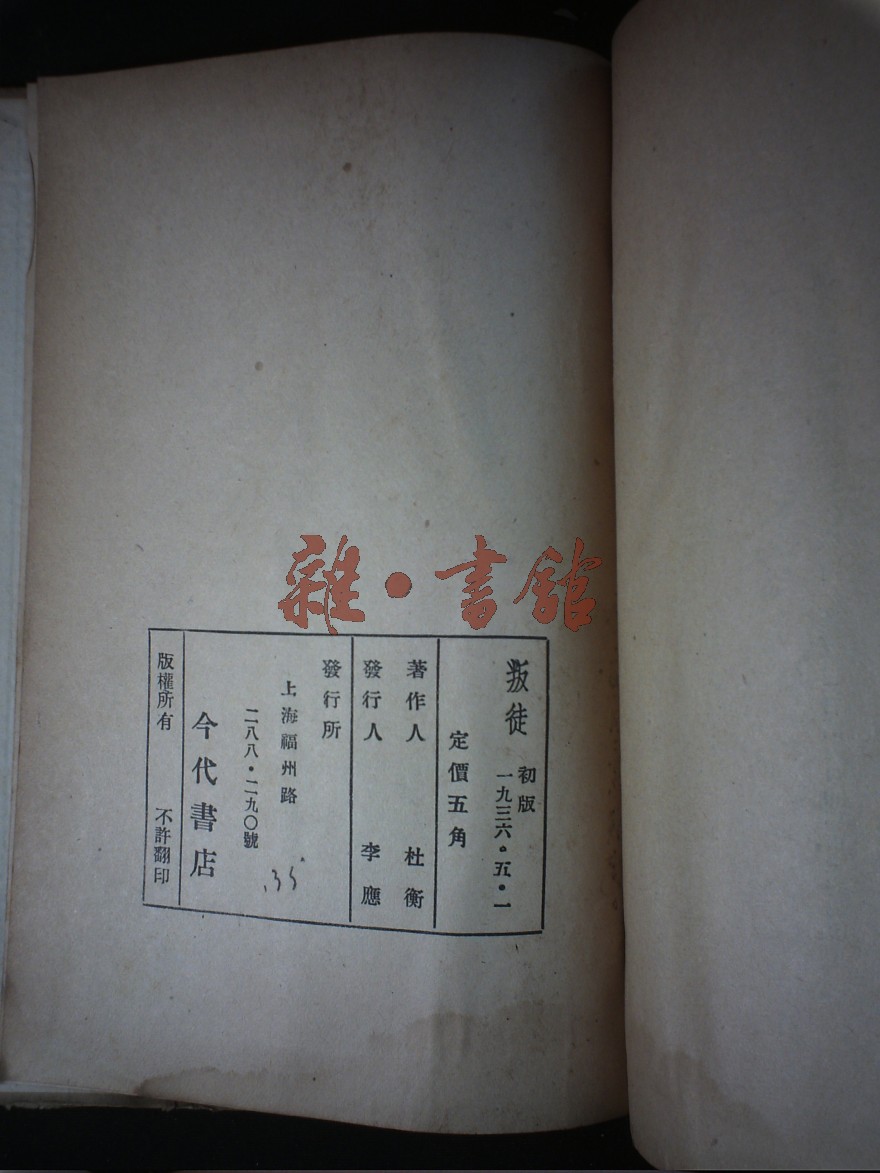 雜·書館
叛徒
初版
一九三六·五·一
定價五角
著作人 杜衡
發行人 李應
發行所
上海福州路
二八八·二九〇號
今代書店
版權所有 不許翻印
.35